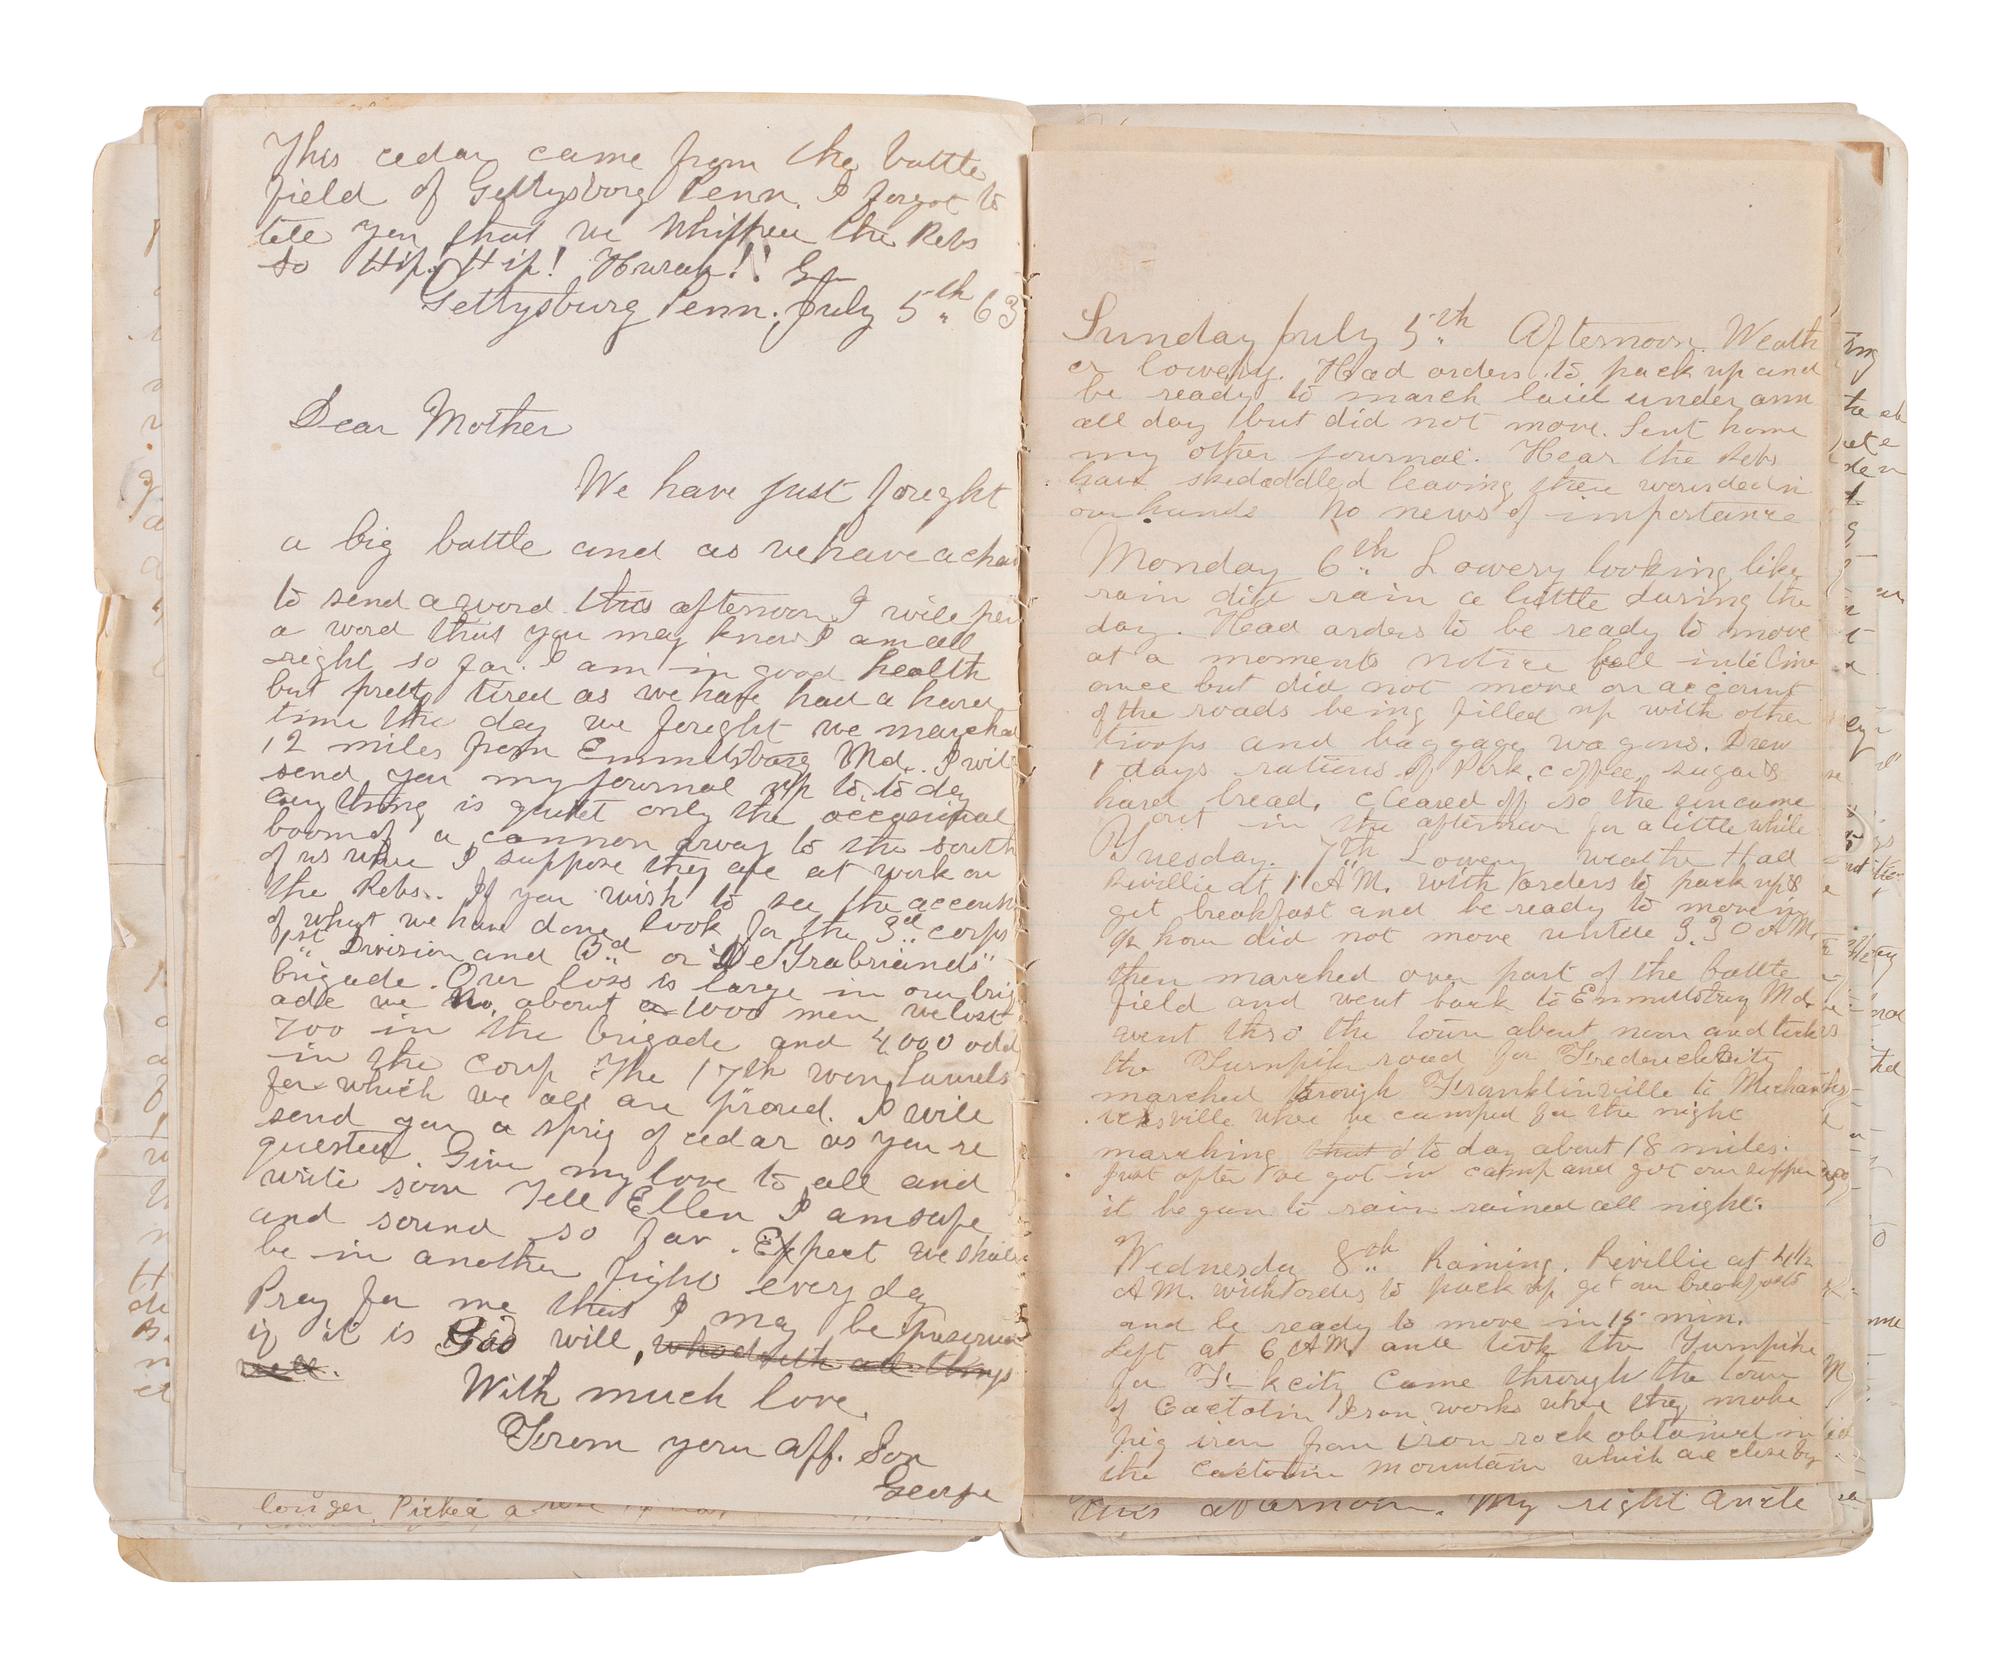 This cedar came from the battle
field of Gettysburg Penn. I forgot to
tell you that we Whipped the Rebs
so Hip, Hip! Hurah!! G
Gettysburg Penn. July 5th 63
Dear Mother
We have just fought
a big battle and as we have a chan
to send a word this afternoon I will pen
a word that you may know I am all
right so far. I am in good health
but pretty tired as we have had a hard
time the day we fought we marched
12 miles from Emmitsburg Md. I will
send you my journal up to to day
every thing is quiet only the occasional
boom of a cannon away to the south
of us where I suppose they are at work on
the Rebs. If you wish to see the account
of what we have done look for the 3rd corps
1st Division and 3rd or "DeTrobriands"
brigade. Our loss is large in our brig
ade we No. about 1000 men we lost
700 in the brigade and 4,000 odd
in the corp The 17th won Laurels
for which we all are proud. I will
send you a sprig of cedar as you re
quested. Give my love to all and
write soon Tell Ellen I am safe
and sound so far. Expect we shall
be in another fight every day
Pray for me that I may be preserved
if it is God will, who doeth all things
well.
With much love
From your aff. Son
George
longer. Picked a
Sunday July 5th Afternoon. Weath
er lowery. Had orders to pack up and
be ready to march laid under arm
all day but did not move. Sent home
my other journal. Hear the Rebs
have skedaddled leaving their wounded in
our hands No news of importance
Monday 6th Lowery looking like
rain did rain a little during the
day. Had orders to be ready to move
at a moments notice fell into line
once but did not move on account
of the roads being filled up with other
troops and baggage wagons. Drew
1 days rations of Pork, coffee, sugar &
hard bread. Cleared off so the sun came
out in the afternoon for a little while
Tuesday. 7th Lowery weather Had
Revillie at 1 A.M. with orders to pack up &
get breakfast and be ready to move in
hour did not move untill 3.30 A.M.
then marched over part of the battle
field and went back to Emmitsburg Md.
went thro the town about noon and
the Turnpike road for Frederick city
marched through Franklinville to Mechanks
icksville where we camped for the night
marching that d to day about 18 miles.
Just after we got in camp and got our supper
it begun to rain rained all night.
Wednesday 8th Raining. Revillie at 4 1/2
A.M. with orders to pack up get our breakfasts
and be ready to move in 15 min.
Left at 6 A.M. and took the Turnpike
for Fr—k city Came through the town
of Cactotin Iron works where they make
pig iron from iron rock obtained in
the Cactotin mountain which are close by
this afternoon. My right